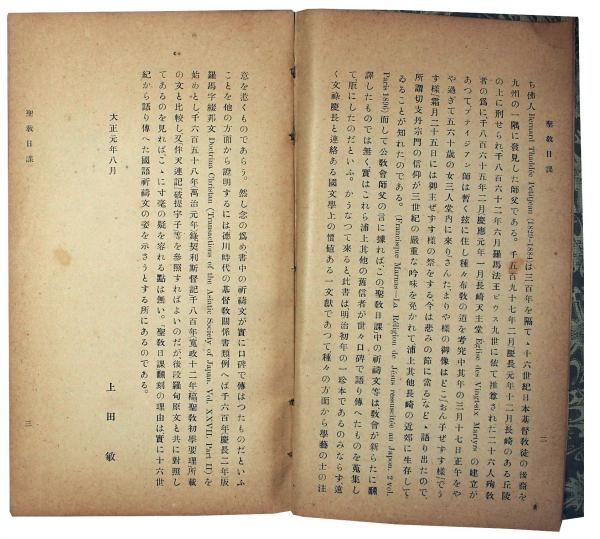 聖教日課
二
ち佛人 Bernard Thaddée Petitjean (1829–1884) は三百年を隔てゝ十六世紀日本基督教徒の後裔を
九州の一隅に發見した師父である。千五百九十七年二月慶長元年十二月長崎のある丘陵
の上に刑せられ千八百六十二年六月羅馬法王ピウス九世に依て推尊された二十六人殉教
者の爲に千八百六十五年二月慶應元年一月長崎天主堂 Eglise des Vingtsix Martyrs の建立が
あつて、プティジアン師は暫く玆に住し種々布教の道を考究中其年の三月十七日正午をや
や過ぎて五六十歳の女三人堂内に來り「さんたまりや様の御像はどこ」「おん子ぜすす様」「でう
す様」「霜月二十五日には御主ぜすす様の祭をする今は悲みの節に當る」など語り出たので、
所謂切支丹宗門の信仰が三世紀の嚴重な吟味を免かれて浦上其他長崎の近郊に生存して
ゐることが知れたのである。(Francisque Marnas—La Réligion de Jésus ressuscitée au Japon. 2 vol.
Paris 1896) 而して公教會師父の言に據れば「この聖教日課中の祈祷文等は教會が新らたに飜
譯したものでは無く實はこれら浦上其他の舊信者が世々口碑で語り傳へたものを蒐集し
て版にしたのだといふ。かうなつて來ると此書は明治初年の一珍本であるのみならす遠
く文祿慶長と連絡ある國文學上の價値ある一文獻であつて種々の方面から學藝の士の注
意を惹くものであらう。然し念の爲め書中の祈祷文が實に口碑で傳はつたものだといふ
ことを他の方面から證明するには德川時代の基督教關係書類例へば千六百年慶長二年版
羅馬字綴邦文 Doctrina Christan (Transactions of the Asiatic Society of Japan. Vol. XXVII. Part II) を
始めとし千六百五十八年萬治元年錄契利斯督記千八百年寬政十二年稿聖教初學要理所載
の文と比較し又伴天連記「破提宇子」等を參照すればよいのだが、後段羅甸原文と共に對照し
てあるのを見れば、こゝにす毫の疑を容れる點は無い。「聖教日課」飜刻の理由は實に十六世
紀から語り傳へた國語祈祷文の姿を示さうとする所にあるのである。
大正元年八月
上田敏
聖教日課
三